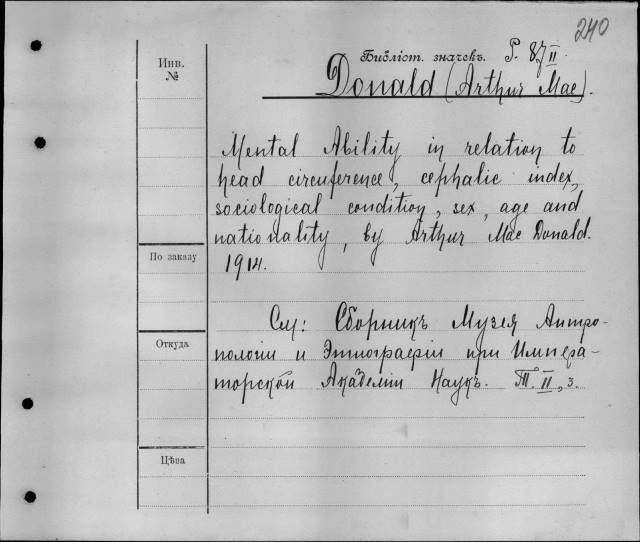 240
Библіот. значекъ. P. 87 II
Инв.
№
Donald (Arthur Mac).
Mental Ability in relation to
head circuference, cephalic index,
sociological condition, sex, age and
nationality, by Arthur Mac Donald.
1914.
По заказу
См: Сборникъ Музея Антро-
Откуда
пологіи и Этнографіи при Импера-
торской Академіи Наукъ. Т. II, 3.
Цѣна